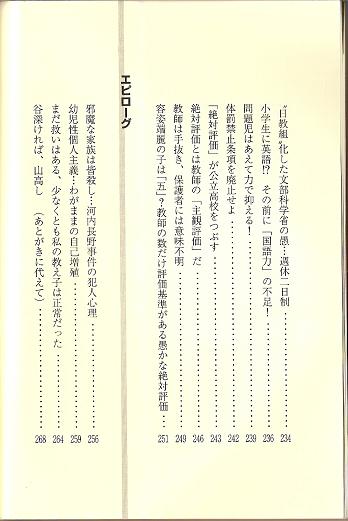 〝日教組〟化した文部科学省の愚…週休二日制 234
小学生に英語!? その前に「国語力」の不足! 236
問題児はあえて力で抑える! 239
体罰禁止条項を廃止せよ 242
「絶対評価」が公立高校をつぶす 243
絶対評価とは教師の「主観評価」だ 246
教師は手抜き、保護者には意味不明 249
容姿端麗の子は「五」?教師の数だけ評価基準がある愚かな絶対評価 251
エピローグ
邪魔な家族は皆殺し…河内長野事件の犯人心理 256
幼児性個人主義…わがままの自己増殖 259
まだ救いはある、少なくとも私の教え子は正常だった 264
谷深ければ、山高し (あとがきに代えて) 268